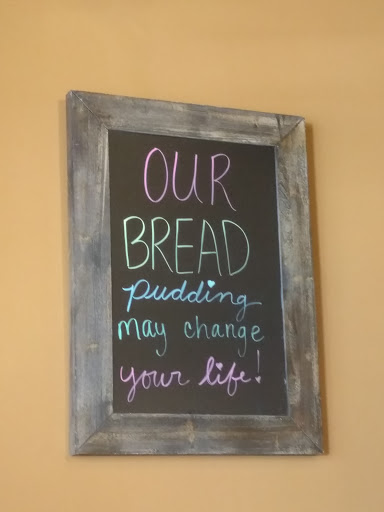 OUR
BREAD
pudding
may change
your life!